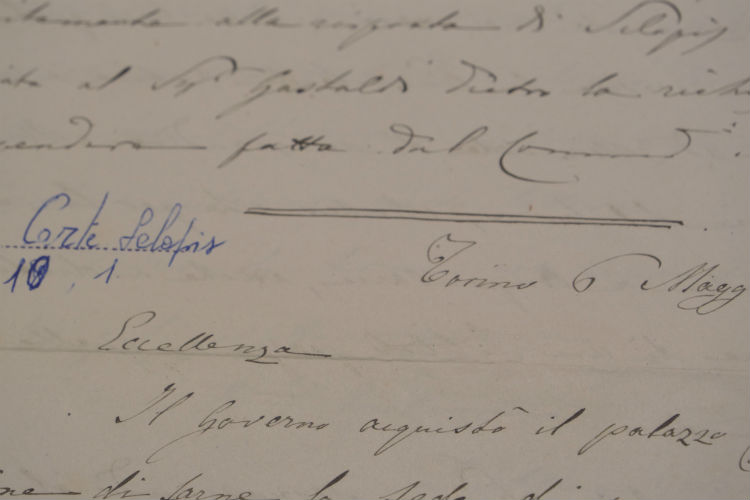 alla risposta di Selopis
al Sigr Gastaldi Pietro la
fatta dal Commend
Corte Selopis
10, 1
Torino 6 Magg
Eccellenza
Il Governo acquistò il palazzo
di farne la sede di